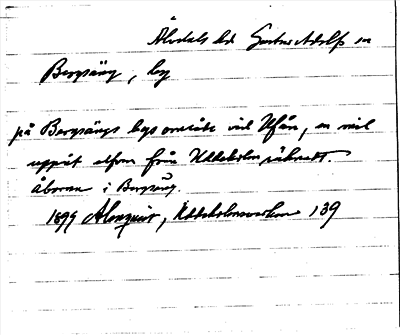 Älvdals hd Gustav Adolfs sn
Bergsäng, by
på Bergsängs bys område vid Ufån, en mil
uppåt elfven från Uddeholm räknadt.
åboran i Bergsäng.
1899 Almquist, Uddeholmsverken 139